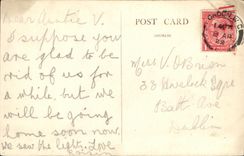 Dear Auntie V.
I suppose you
are glad to be
rid of us for
a while, but we
will be going
home soon now.
We saw the lights. Love
POST CARD
Miss V O'Brien
33 Havelock Sqre
Bath Ave
Dublin